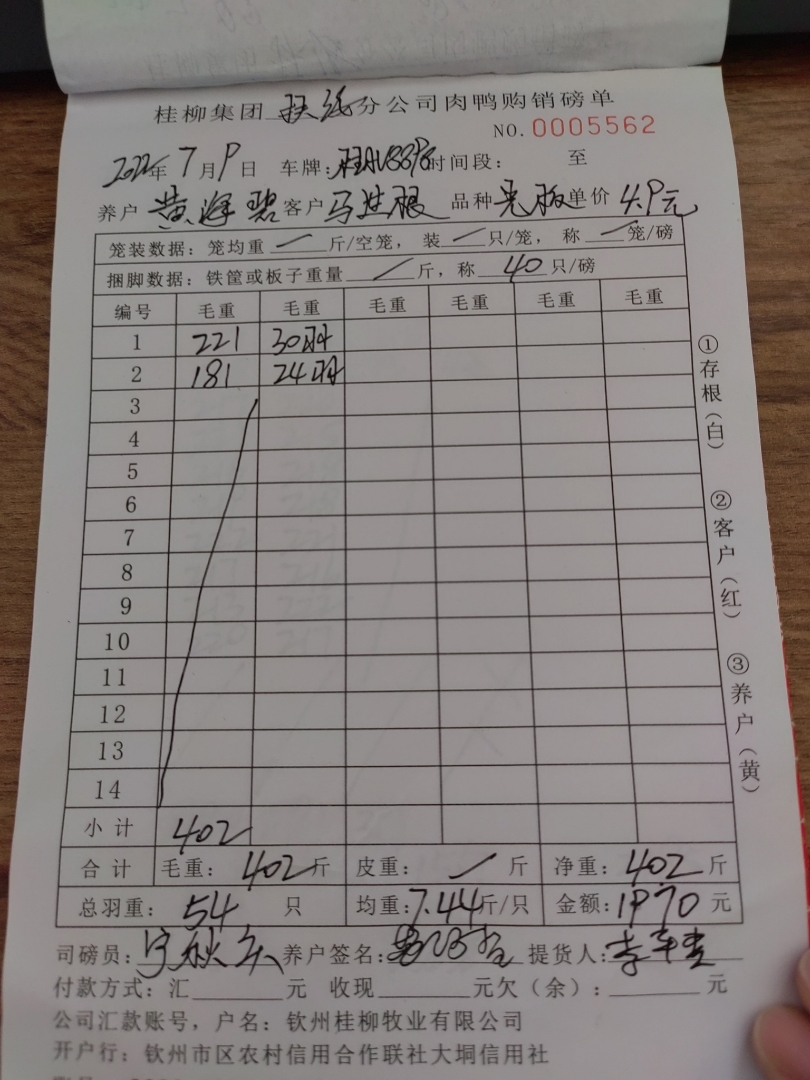 桂柳集团 扶绥 分公司肉鸭购销磅单
NO.0005562
2022年7月9日 车牌: 时间段: 至
养户 黄海碧 客户 马进根 品种 光板 单价 4.9元
笼装数据: 笼均重 / 斤/空笼, 装 / 只/笼, 称 / 笼/磅
捆脚数据: 铁筐或板子重量 / 斤, 称 40 只/磅
编号 毛重 毛重 毛重 毛重 毛重 毛重
1 221 30羽
2 181 24羽
3
4
5
6
7
8
9
10
11
12
13
14
小计 402
合计 毛重: 402斤 皮重: / 斤 净重: 402斤
总羽重: 54 只 均重: 7.44斤/只 金额: 1970 元
司磅员: 养户签名: 提货人:
付款方式: 汇 元 收现 元欠(余): 元
公司汇款账号, 户名: 钦州桂柳牧业有限公司
开户行: 钦州市区农村信用合作联社大垌信用社
①存根(白)
②客户(红)
③养户(黄)